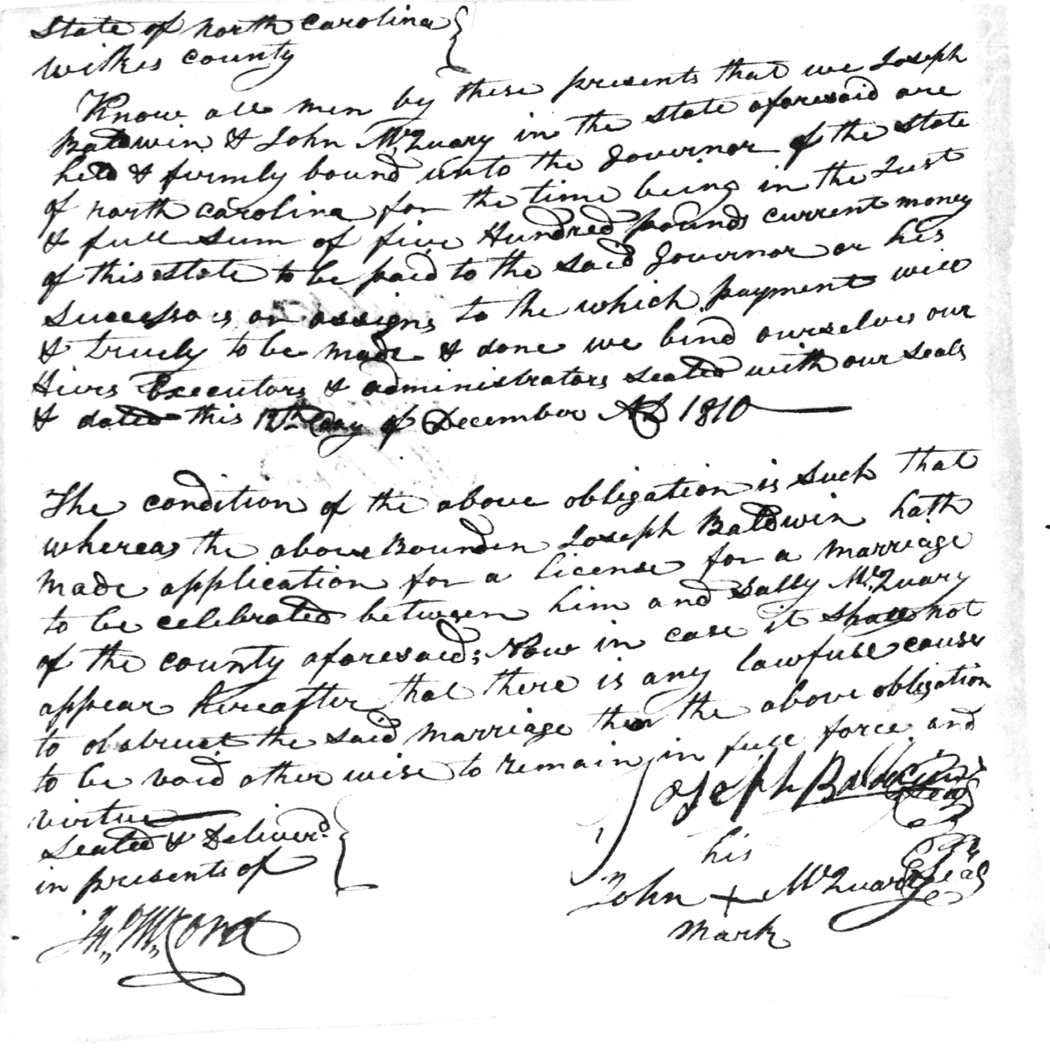 State of north Carolina
Wilkes County
Know all men by these presents that we Joseph
Baldwin & John McQuary in the state aforesaid are
held & firmly bound unto the Governor of the State
of north Carolina for the time being in the Just
& full Sum of five Hundred pounds current money
of this state to be paid to the said Governor or his
Successors or assigns to the which payment will
& truely to be made & done we bind ourselves our
Hiers Executors & administrators Sealed with our Seals
& dated this day of December AD 1810
The condition of the above obligation is such that
whereas the above Bounden Joseph Baldwin hath
made application for a license for a marriage
to be celebrated between him and Sally McQuary
of the County aforesaid; Now in case it shall not
appear hereafter that there is any lawfull cause
to obstruct the said marriage then the above obligation
to be void other wise to remain in full force and
virtue
Sealed & Deliverd
in presents of
Joseph Baldwin Seal
his
John + McQuary Seal
mark